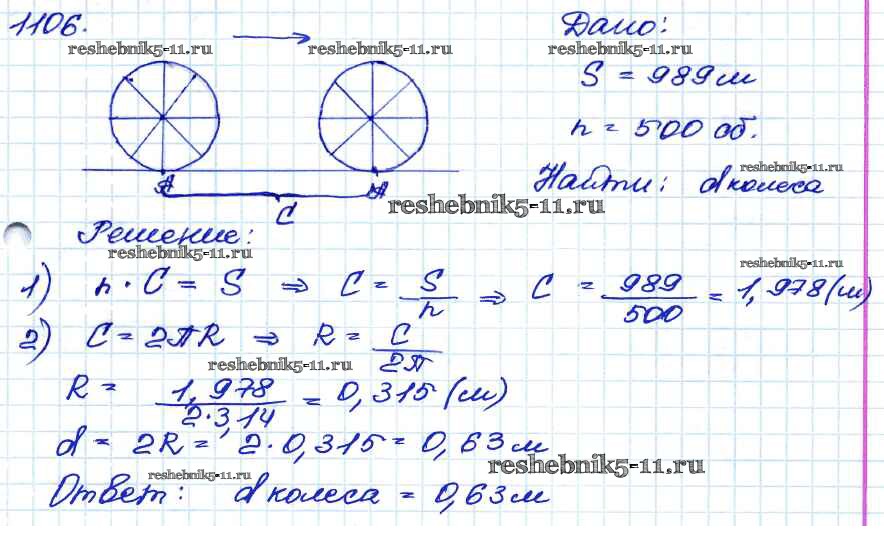 1106. Дано:
reshebnik5-11.ru reshebnik5-11.ru reshebnik5-11.ru
S = 989 м
n = 500 об.
reshebnik5-11.ru
Найти: d колеса
A A
reshebnik5-11.ru
C
Решение:
reshebnik5-11.ru reshebnik5-11.ru
1) n · C = S ⇒ C = S/n ⇒ C = 989/500 = 1,978 (м)
2) C = 2πR ⇒ R = C/2π
reshebnik5-11.ru
R = 1,978/2·3,14 = 0,315 (м)
d = 2R = 2·0,315 = 0,63 м
reshebnik5-11.ru reshebnik5-11.ru
Ответ: d колеса = 0,63 м